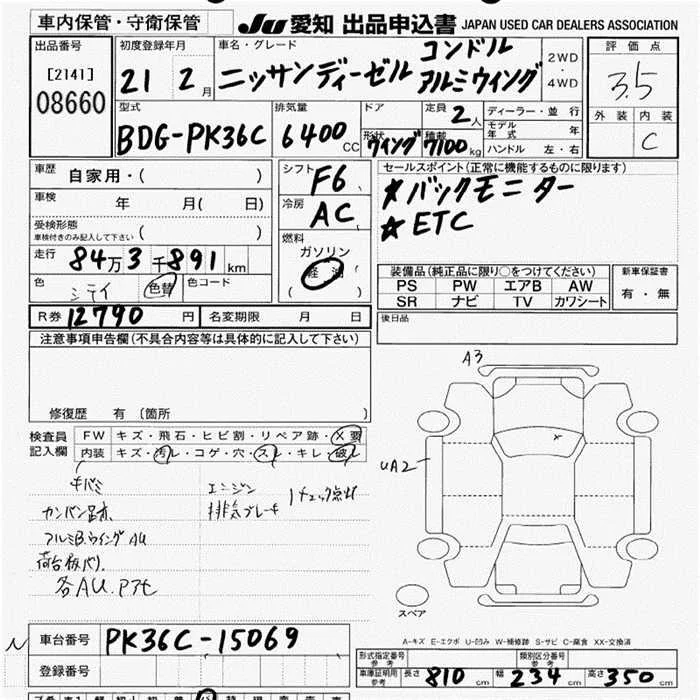 車内保管・守衛保管
JU 愛知 出品申込書 JAPAN USED CAR DEALERS ASSOCIATION
出品番号
[2141]
08660
初度登録年月
21 2月
車名・グレード
ニッサンディーゼル コンドル
アルミウイング
2WD
・
4WD
評価点
3.5
外装 内装
C
型式
BDG-PK36C
排気量
6400 CC
ドア
形状
ウイング
定員
2人
積載
7100 kg
ディーラー・並行
モデル年式 年
ハンドル 左・右
車歴 自家用・( )
車検 年 月( 日)
受検形態
車検付きのみ記入して下さい ( )
走行 84万3千891km
色 シテイ 色替 色コード
R券 12790円 名変期限 月 日
シフト F6
冷房 AC
燃料
ガソリン
軽油
( )
セールスポイント(正常に機能するものに限ります)
★バックモニター
★ETC
装備品(純正品に限り○をつけてください)
PS PW エアB AW
SR ナビ TV カワシート
新車保証書
有・無
後日品
注意事項申告欄(不具合内容等は具体的に記入して下さい)
修復歴 有 (箇所 )
検査員記入欄
FW キズ・飛石・ヒビ割・リペア跡・X要
内装 キズ・汚レ・コゲ・穴・スレ・キレ・破レ
キバミ
カンバン跡
アルミB.ウイングAU
荷台板バリ
各AU.Pアセ
エンジン
排気ブレーキ
チェック点灯
A3
UA2
x
スペア
A-キズ E-エクボ U-凹み W-補修跡 S-サビ C-腐食 XX-交換済
車台番号 PK36C-15069
登録番号
形式指定番号 参考
類別区分番号 参考
車庫証明用 参考 長さ 810cm 幅 234cm 高さ 350cm